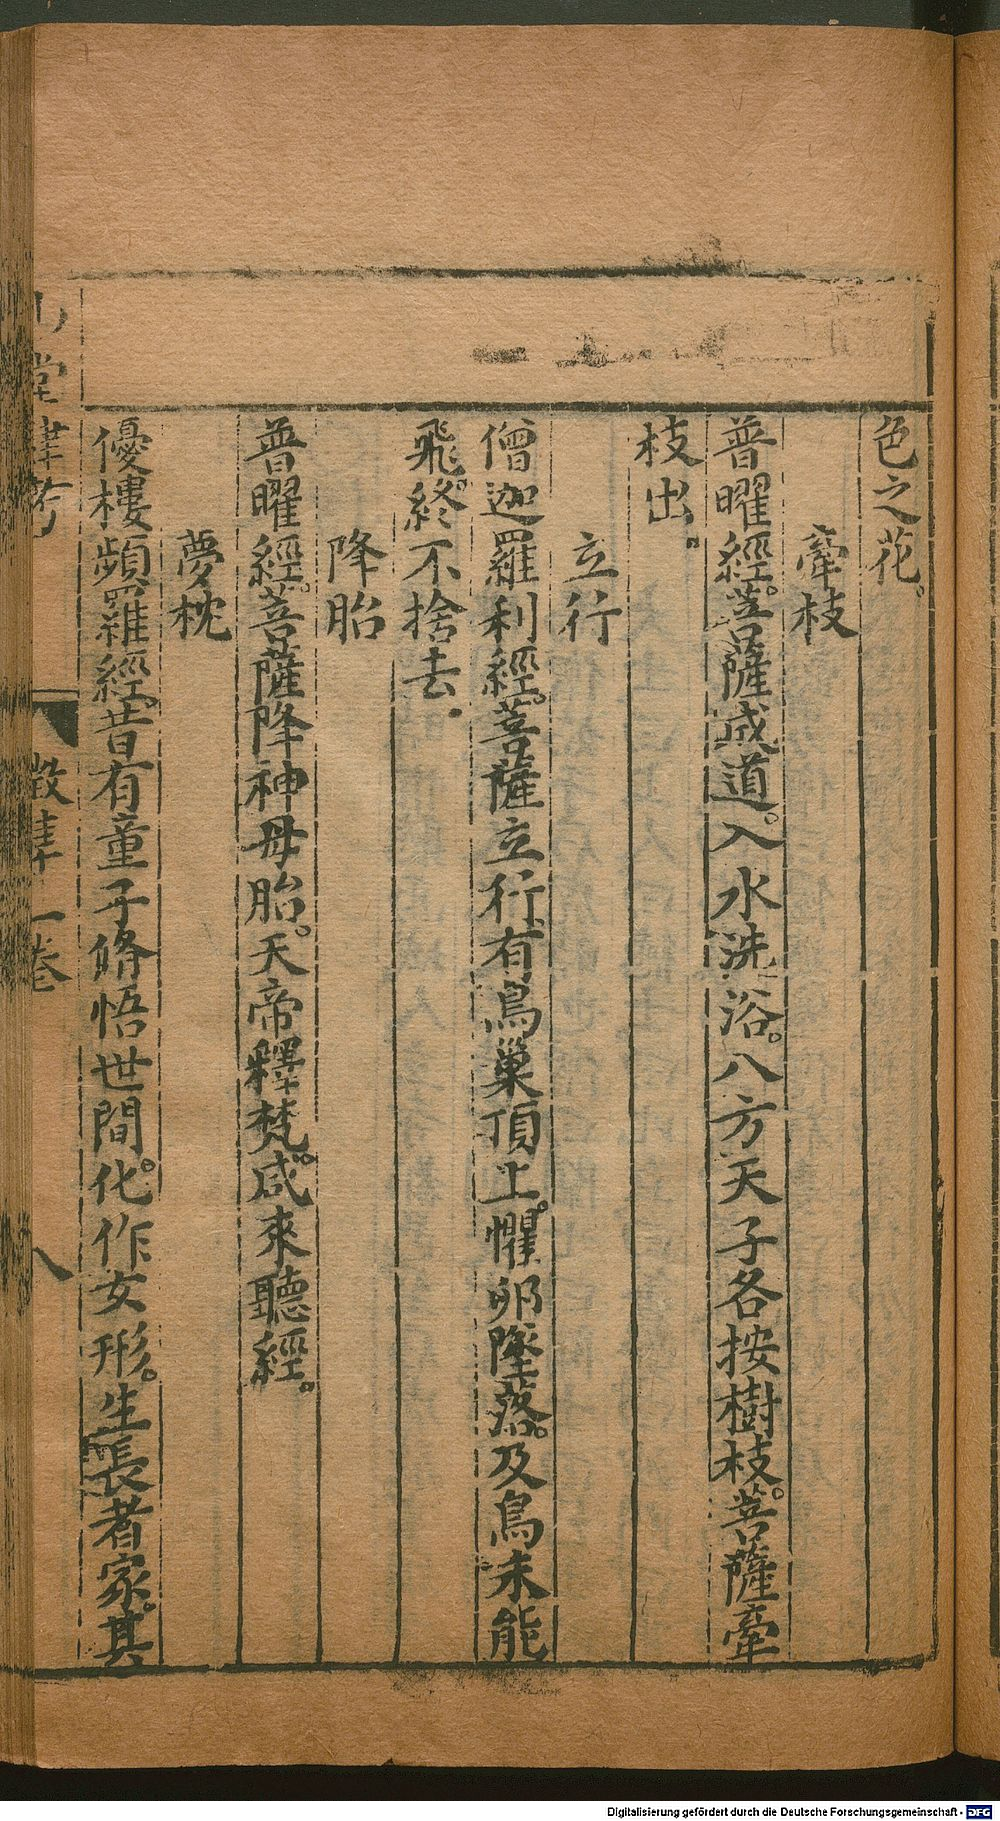 色之花。
牽枝
普曜經。菩薩成道。入水洗浴。八方天子各按樹枝。菩薩牽
枝出。
立行
僧迦羅利經。菩薩立行、有鳥巢頂上。懼卵墜落。及鳥未能
飛。終不捨去。
降胎
普曜經。菩薩降神母胎。天帝釋梵。咸來聽經。
夢枕
優樓頻羅經。昔有童子脩悟世間。化作女形。生長者家。其
山堂肆考
徵集一卷
八
Digitalisierung gefördert durch die Deutsche Forschungsgemeinschaft - DFG